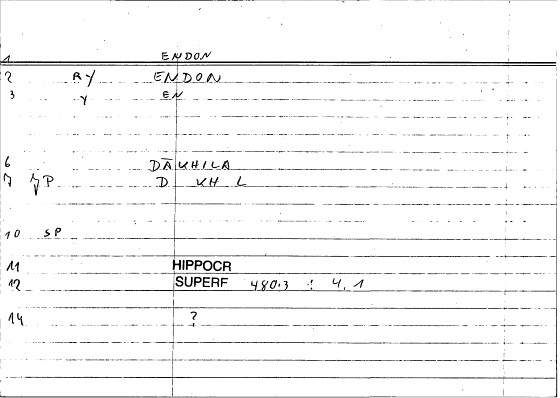 1 ENDON
2 RY ENDON
3 Y EN
6 DĀKHILA
7 P D KH L
10 SP
11 HIPPOCR
12 SUPERF 480.3 : 4,1
14 ?